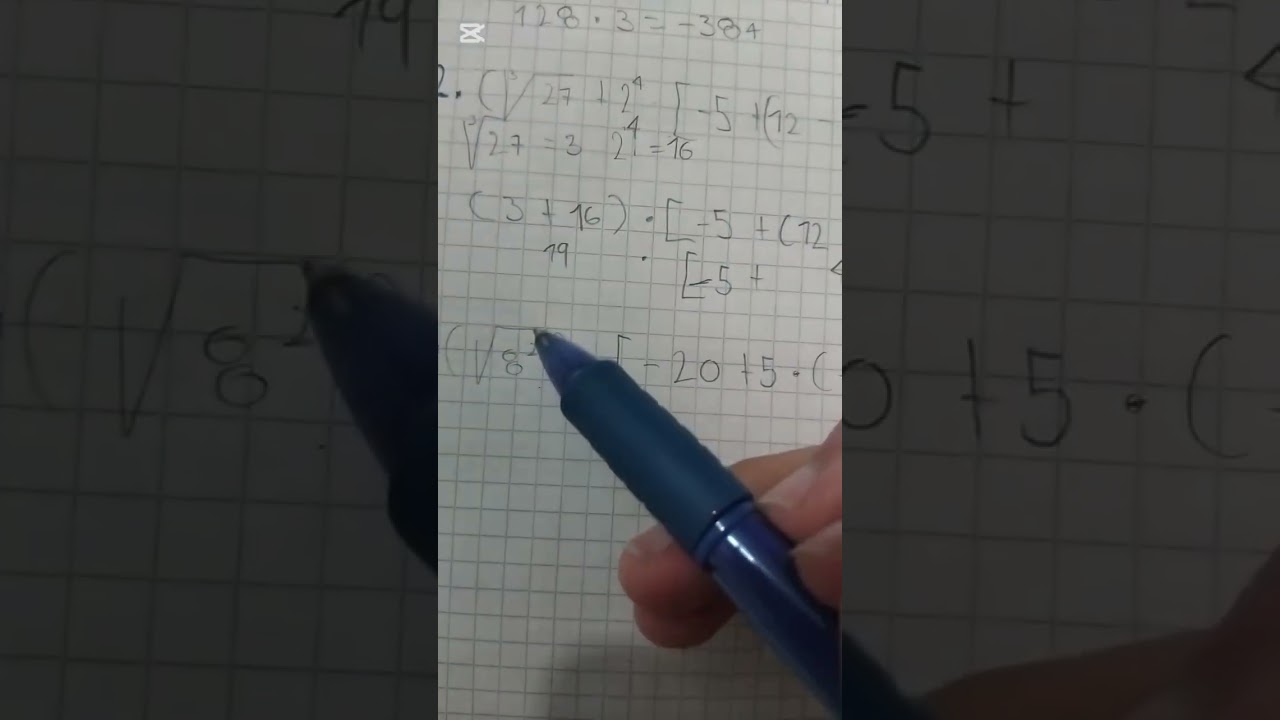 128 · 3 = -384
2. (∛27 + 2⁴ [-5 + (12 -
∛27 = 3 2⁴ = 16
(3 + 16) · [-5 + (12
19 · [-5 +
(√8² [-20 + 5 · (